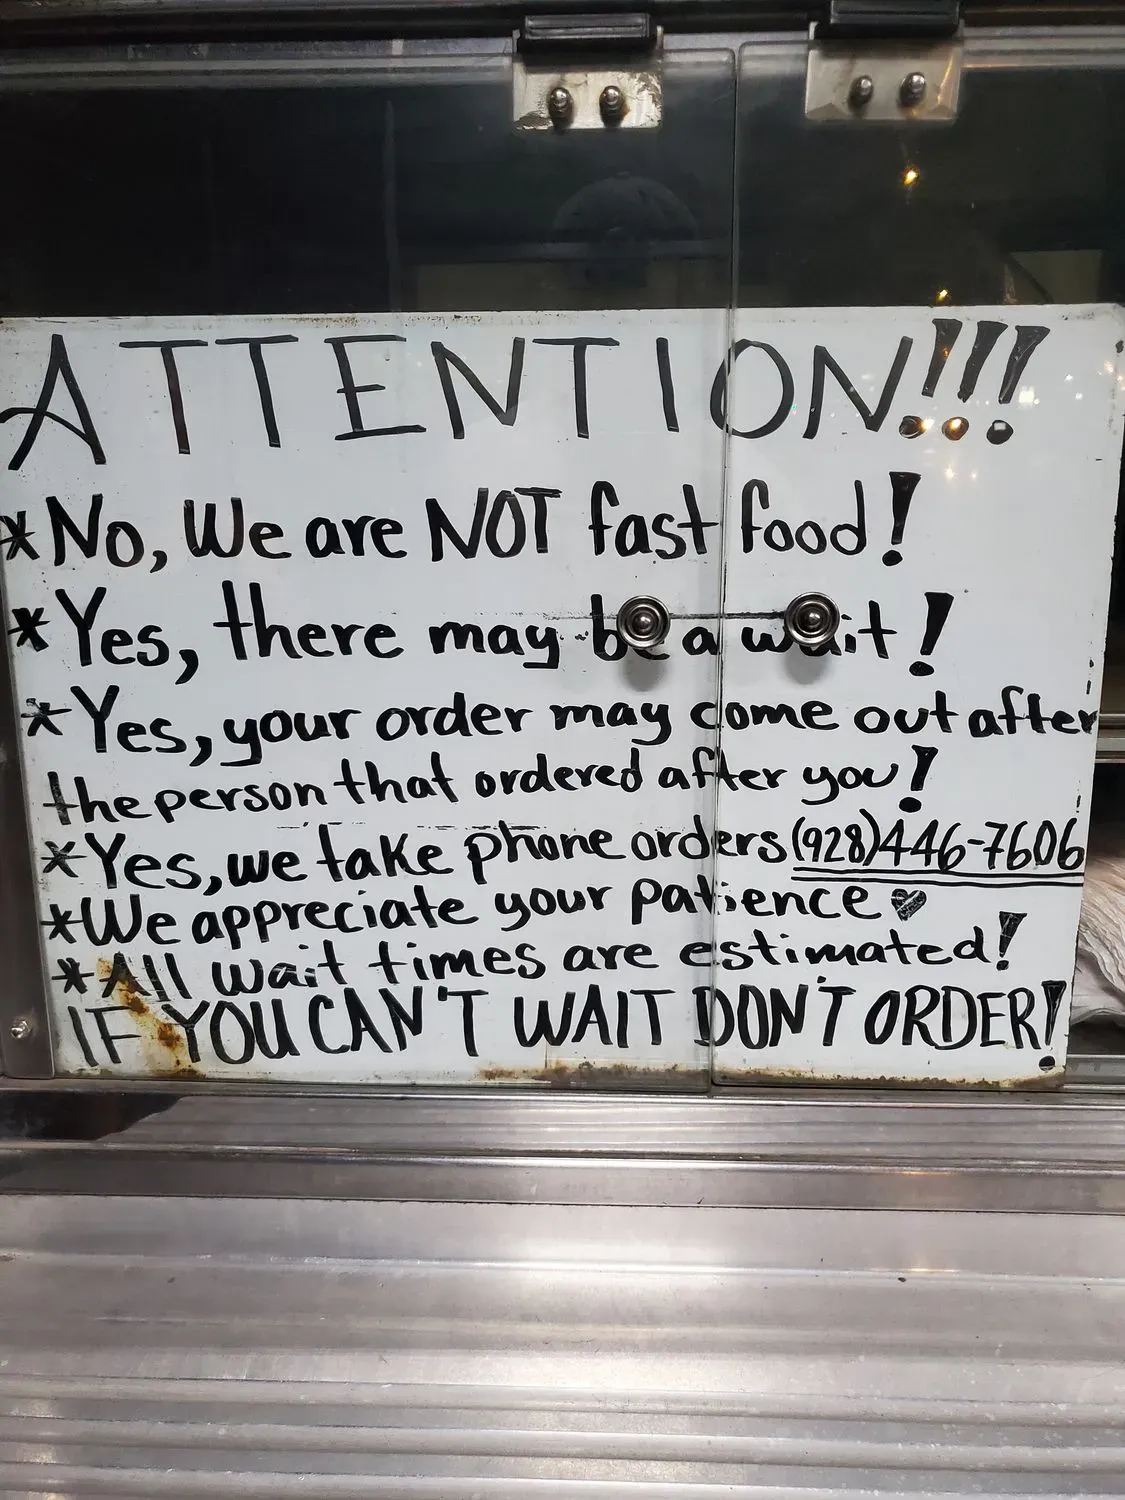 ATTENTION!!!
*No, We are NOT fast food!
*Yes, there may be a wait!
*Yes, your order may come out after
the person that ordered after you!
*Yes, we take phone orders (928)446-7606
*We appreciate your patience ♥
*All wait times are estimated!
IF YOU CAN'T WAIT DON'T ORDER!